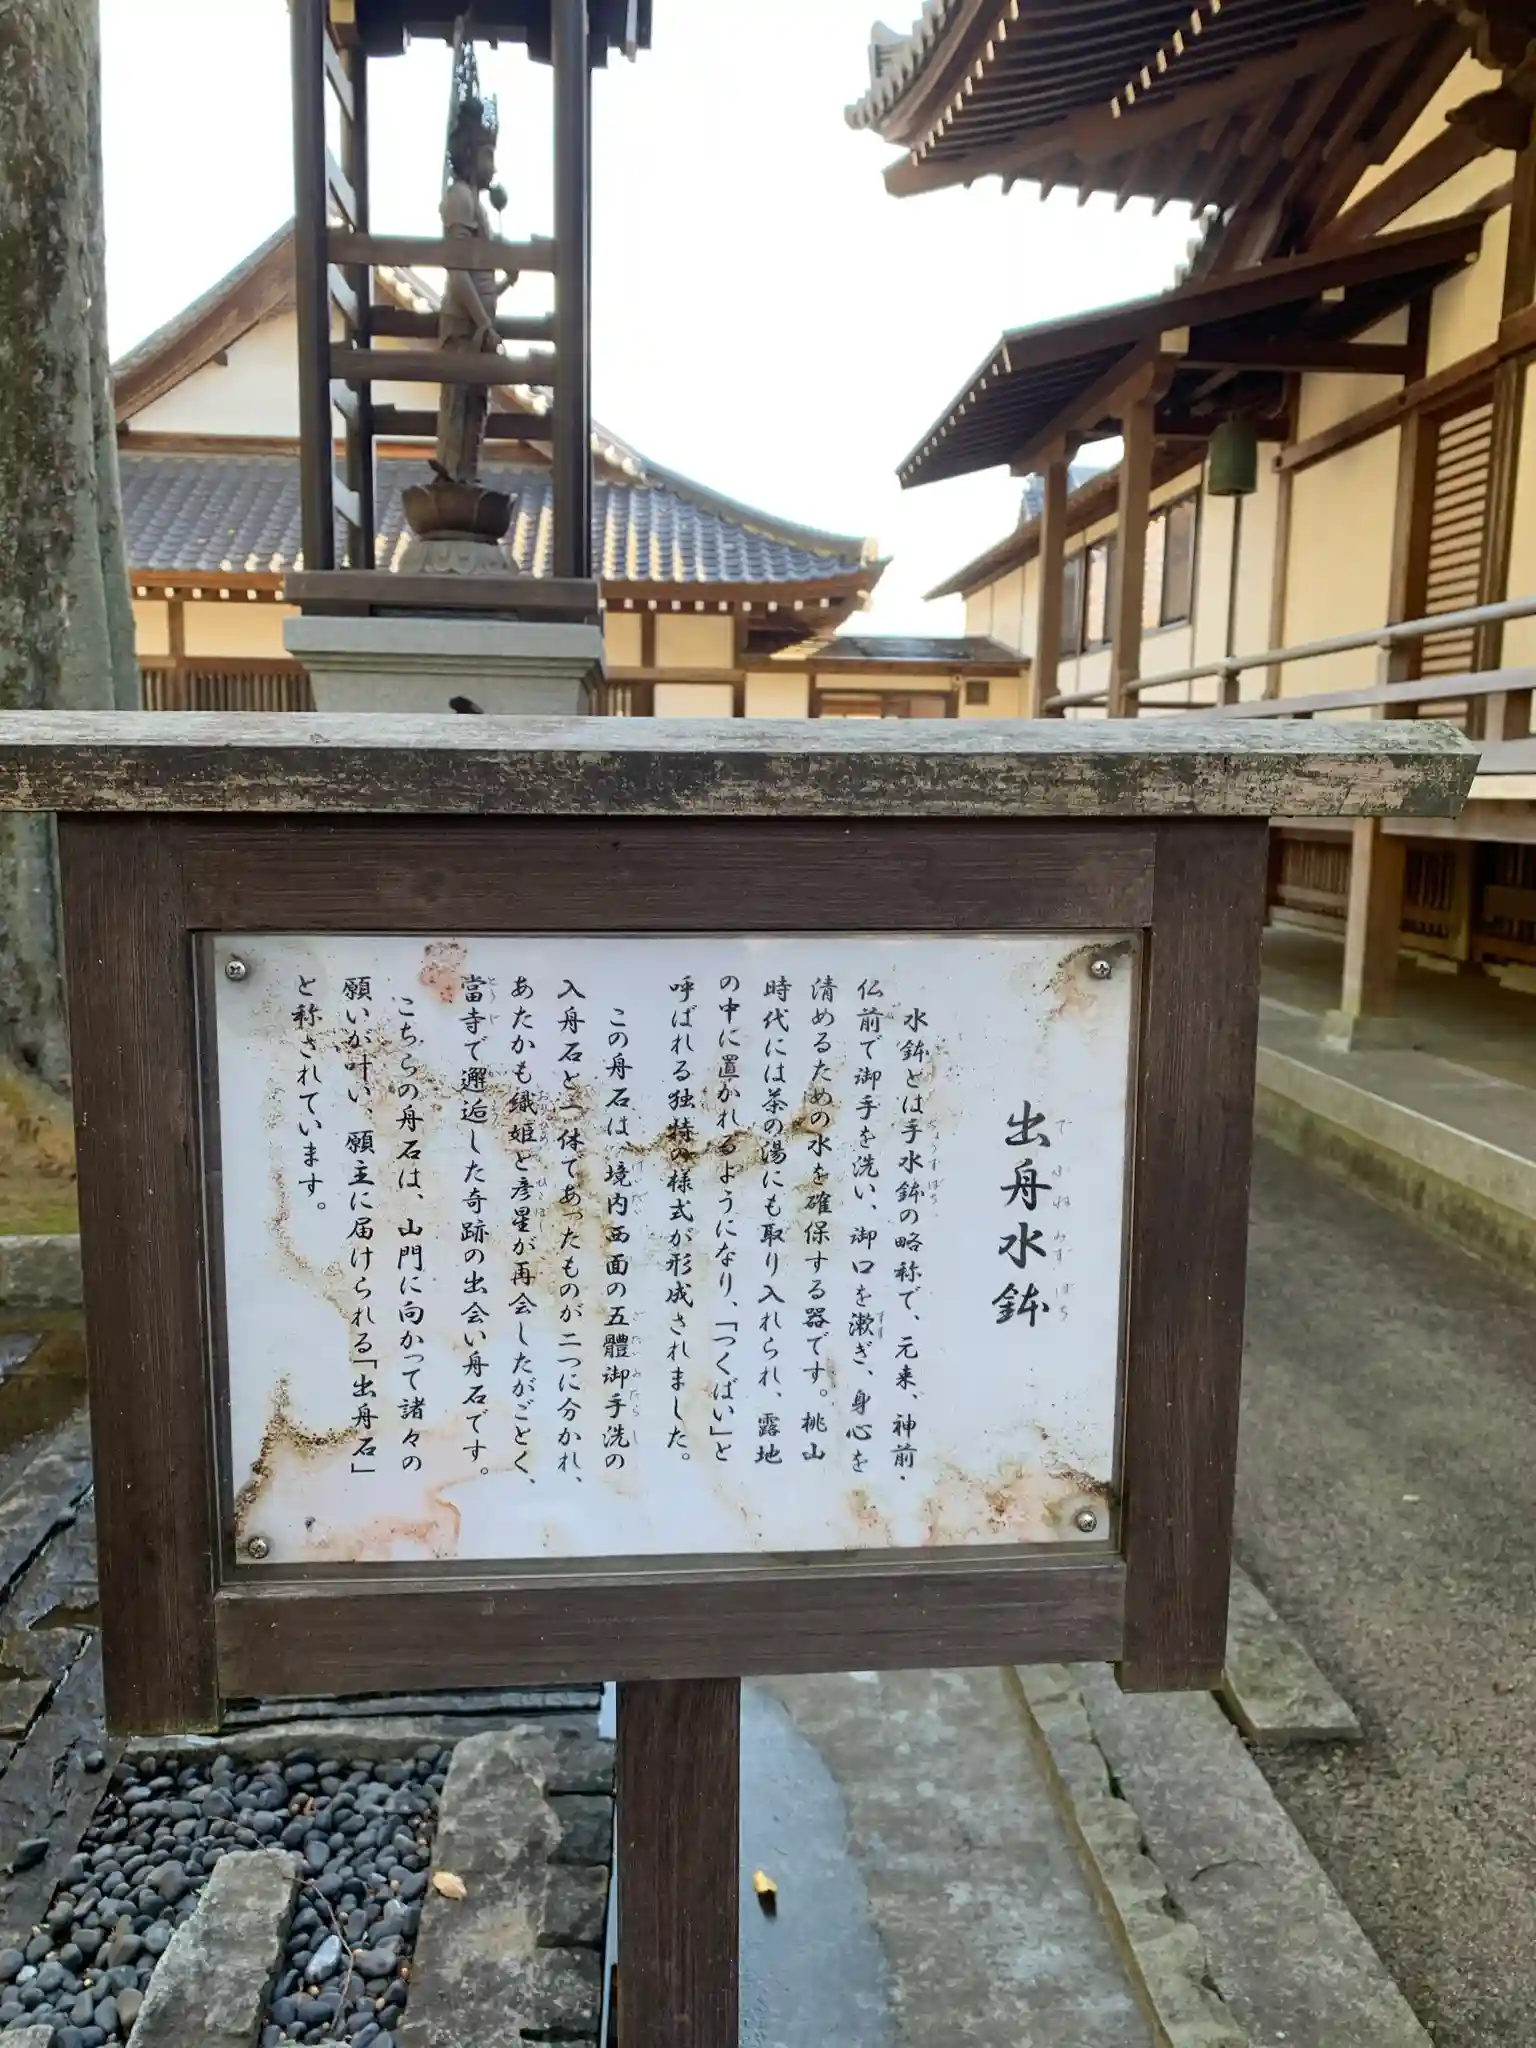 出舟水鉢
でふねみずばち
水鉢とは手水鉢の略称で、元来、神前・
ちょうずばち
仏前で御手を洗い、御口を漱ぎ、身心を
すす
清めるための水を確保する器です。桃山
時代には茶の湯にも取り入れられ、露地
の中に置かれるようになり、「つくばい」と
呼ばれる独特の様式が形成されました。
この舟石は、境内西面の五體御手洗の
けいだい
ごたいみたらし
入舟石と一体であったものが二つに分かれ、
あたかも織姫と彦星が再会したがごとく、
おりひめ
ひこぼし
當寺で邂逅した奇跡の出会い舟石です。
とうじ
かいこう
こちらの舟石は、山門に向かって諸々の
願いが叶い、願主に届けられる「出舟石」
と称されています。